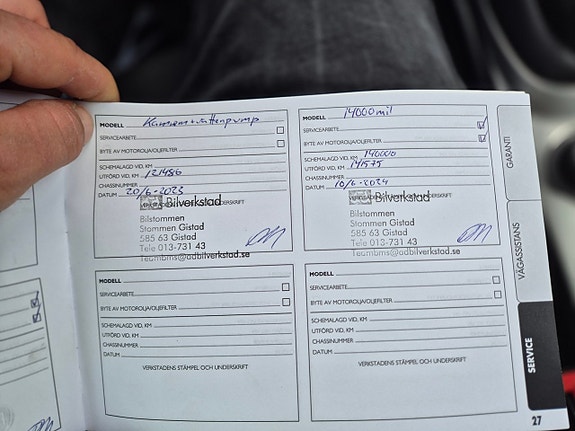 MODELL Kamrem+vattenpump
SERVICEARBETE
BYTE AV MOTOROLJA/OLJEFILTER
SCHEMALAGD VID, KM
UTFÖRD VID, KM 121486
CHASSINUMMER
DATUM 20/6-2023
VERKSTADENS STÄMPEL OCH UNDERSKRIFT
Bilverkstad
Bilstommen
Stommen Gistad
585 63 Gistad
Tele 013-731 43
Teambms@adbilverkstad.se
MODELL 14000mil
SERVICEARBETE
BYTE AV MOTOROLJA/OLJEFILTER
SCHEMALAGD VID, KM 140000
UTFÖRD VID, KM 141575
CHASSINUMMER
DATUM 10/6-2024
VERKSTADENS STÄMPEL OCH UNDERSKRIFT
Bilverkstad
Bilstommen
Stommen Gistad
585 63 Gistad
Tele 013-731 43
Teambms@adbilverkstad.se
MODELL
SERVICEARBETE
BYTE AV MOTOROLJA/OLJEFILTER
SCHEMALAGD VID, KM
UTFÖRD VID, KM
CHASSINUMMER
DATUM
VERKSTADENS STÄMPEL OCH UNDERSKRIFT
MODELL
SERVICEARBETE
BYTE AV MOTOROLJA/OLJEFILTER
SCHEMALAGD VID, KM
UTFÖRD VID, KM
CHASSINUMMER
DATUM
VERKSTADENS STÄMPEL OCH UNDERSKRIFT
GARANTI
VÄGASSISTANS
SERVICE
27